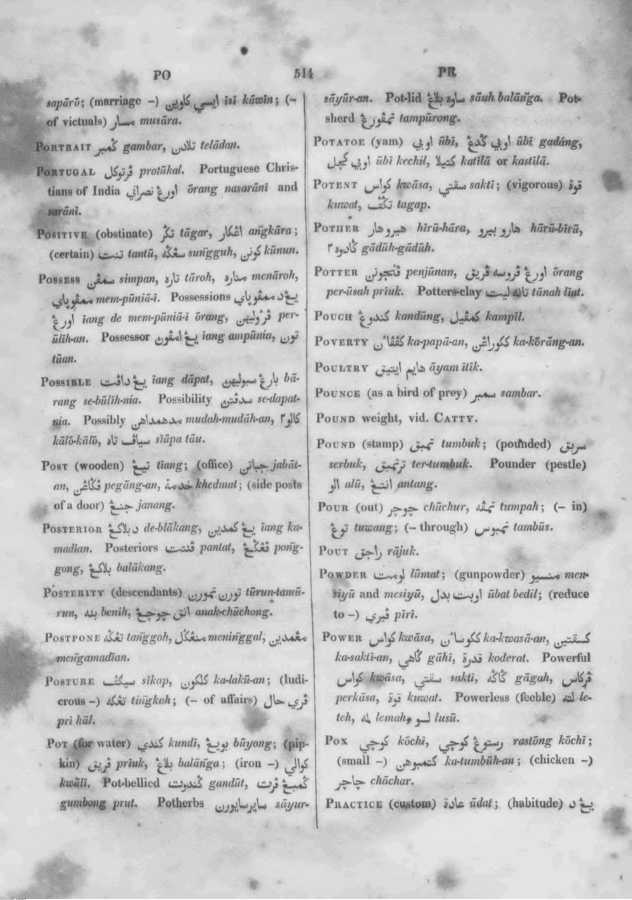 PO 514 PR
sapārō; (marriage –) ايسي كاوين īsī kāwīn; (–
of victuals) مسار musāra.
PORTRAIT گمبر gambar, تلادن telādan.
PORTUGAL ڤرتوكل protūkal. Portuguese Chris-
tians of India اورڠ نصراني ōrang nasarānī and
sarānī.
POSITIVE (obstinate) تگر tāgar, اڠكار angkāra;
(certain) تنت tantū, سڠگه sungguh, كونن kūnun.
POSSESS simpan, تاره tāroh, مناره menāroh,
mem-pūniā-i. Possessions
اورڠ iang de mem-pūniā-i ōrang, per-
ūlih-an. Possessor يڠ امڤون iang ampūnia, تون
tūan.
POSSIBLE يڠ داڤت iang dāpat, بارڠ سبوليهن bā-
rang se-būlih-nia. Possibility سدڤتن se-dapat-
nia. Possibly مدهمداهن mudah-mudāh-an, كالو٢
kālō-kālō, سياڤ تاه siāpa tāu.
POST (wooden) تيڠ tīang; (office) جباتن jabāt-
an, ڤگاڠن pegāng-an, خدمة khedmat; (side posts
of a door) جنڠ janang.
POSTERIOR دبلاكڠ de-blākang, يڠ كمدين iang ka-
madian. Posteriors ڤنتت pantat, ڤڠگڠ pong-
gong, بلاكڠ balākang.
POSTERITY (descendants) تورن تمورن tūrun-tamū-
run, بنه benih, انق چوچڠ anak-chūchong.
POSTPONE تڠگه tanggoh, منڠگل meninggal, مڠمدين
mengamadian.
POSTURE سيكڤ sīkap, كلكون ka-lakū-an; (ludi-
crous –) تڠكه tingkah; (– of affairs) ڤري حال
prī hāl.
POT (for water) كندي kundī, بويڠ būyong; (pip-
kin) ڤريق prīuk, بلاڠ balānga; (iron –) كوالي
kwālī. Pot-bellied گندوت gandūt, گمبڠ ڤرت
gumbong prut. Potherbs سايرسايورن sāyur-
sāyūr-an. Pot-lid ساوه بلاڠ sāuh balānga. Pot-
sherd تمڤورڠ tampūrong.
POTATOE (yam) اوبي ūbī, اوبي گدڠ ūbī gadáng,
اوبي كيچل ūbī kechil, كتيلا katīlā or kastīlā.
POTENT كواس kwāsa, سقتي saktī; (vigorous) قوة
kuwat, تگڤ tagap.
POTHER هيروهار hīrū-hāra, هارو بيرو hārū-bīrū,
گادوه٢ gādūh-gādūh.
POTTER ڤنجونن penjūnan, اورڠ ڤروسه ڤريق ōrang
per-ūsah prīuk. Potters-clay تانه ليت tānah līat.
POUCH كندوڠ kandūng, كمڤيل kampīl.
POVERTY ka-papā-an, ككوراڠن ka-kōrāng-an.
POULTRY هايم ايتيق āyam ītik.
POUNCE (as a bird of prey) سمبر sambar.
POUND weight, vid. CATTY.
POUND (stamp) تمبق tumbuk; (pounded) سربق
serbuk, ترتمبق ter-tumbuk. Pounder (pestle)
الو alū, انتڠ antang.
POUR (out) چوچر chūchur, تمڤه tumpah; (– in)
توڠ tuwang; (– through) تمبوس tambūs.
POUT راجق rājuk.
POWDER لومت lūmat; (gunpowder) منسيو men-
siyū and mesiyū, اوبت بدل ūbat bedil; (reduce
to –) ڤيري pīrī.
POWER كواس kwāsa, ككوساءن ka-kwasā-an, كسقتين
ka-saktī-an, گاهي gāhī, قدرة koderat. Powerful
كواس kwāsa, سقتي saktī, گاگه gāgah, ڤركاس
perkāsa, قوة kuwat. Powerless (feeble) لته le-
teh, لمه lemah, لسو lusū.
POX كوچي kōchī, رستوڠ كوچي rastōng kōchī;
(small –) كتمبوهن ka-tumbūh-an; (chicken –)
چاچر chāchar.
PRACTICE (custom) عادة ādat; (habitude) يڠ د